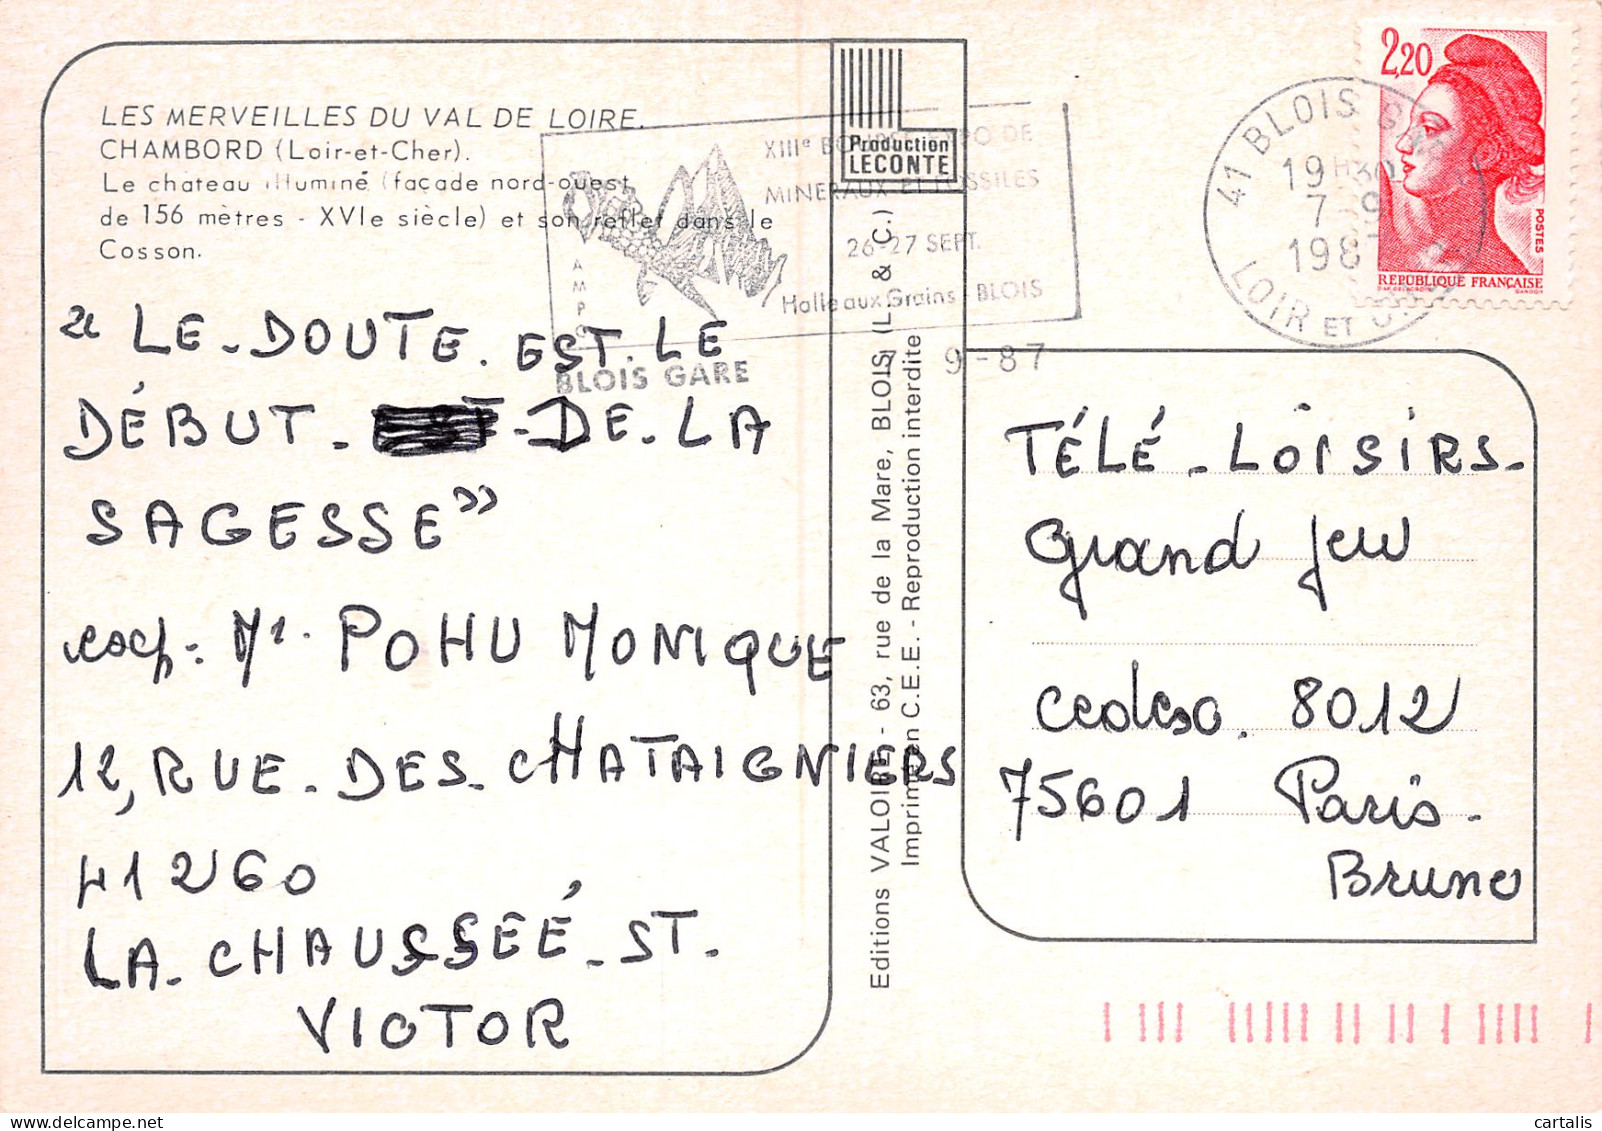 LES MERVEILLES DU VAL DE LOIRE.
CHAMBORD (Loir-et-Cher).
Le chateau illuminé (façade nord-ouest
de 156 mètres - XVIe siècle) et son reflet dans le
Cosson.
« LE DOUTE. EST. LE
DÉBUT - DE. LA
SAGESSE »
exp: Me. POHU MONIQUE
12, RUE. DES. CHATAIGNIERS
41260
LA. CHAUSSEÉ. ST.
VICTOR
Production
LECONTE
XIIIe BOURSE EXPO DE
MINERAUX ET FOSSILES
26-27 SEPT.
Halle aux Grains - BLOIS
BLOIS GARE
9-87
41 BLOIS GARE
19H30
7 9
1987
LOIR ET CHER
2,20
POSTES
REPUBLIQUE FRANÇAISE
Editions VALOIRE - 63, rue de la Mare, BLOIS (L. & C.)
Imprimé en C.E.E. - Reproduction interdite
TÉLÉ - LOISIRS -
Grand Jeu
Cedex. 8012
75601 Paris.
Bruno
cartalis